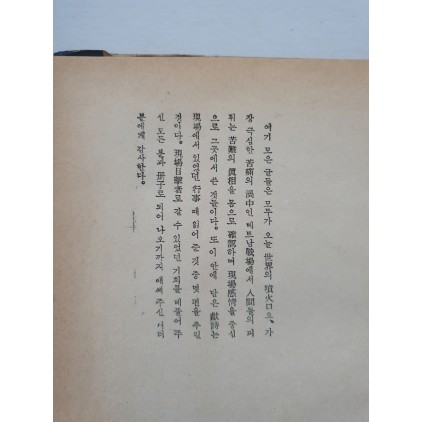 여기 모은 글들은 모두가 오늘 世界의 噴火口요, 가
장 극심한 苦痛의 渦中인 베트남戰場에서 人間들의 피
튀는 苦難의 眞相을 몸으로 確認하며 現場感情을 중심
으로 그곳에서 쓴 것들이다. 또 이 안에 담은 獻詩는
現場에서 있었던 行事 때 읽어 준 것 중 몇 편을 추린
것이다. 現場目擊者로 갈 수 있었던 기회를 베풀어 주
신 모든 분과 冊子로 되어 나오기까지 애써 주신 여러
분에게 감사한다.